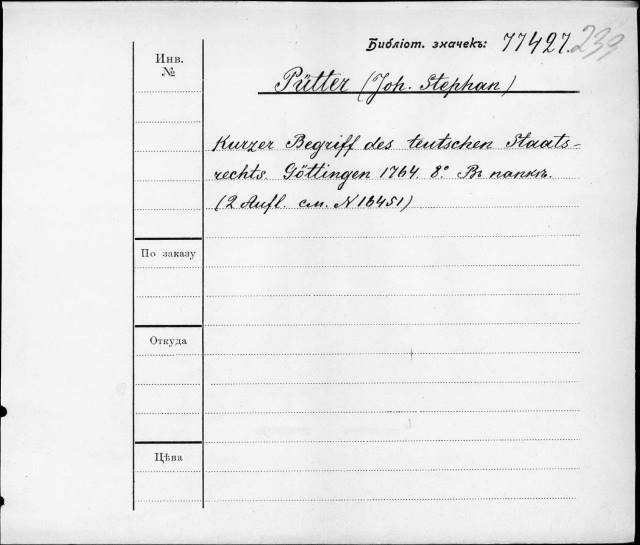 Библіот. значекъ: 77427. 239
Инв.
№
Pütter (Joh. Stephan)
Kurzer Begriff des teutschen Staats-
rechts. Göttingen 1764. 8° Въ папкѣ.
(2 Aufl. см. N 16451)
По заказу
Откуда
Цѣна